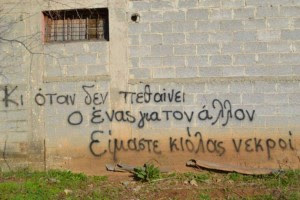 Κι όταν δεν πεθαίνει
ο ένας για τον άλλον
Είμαστε κιόλας νεκροί